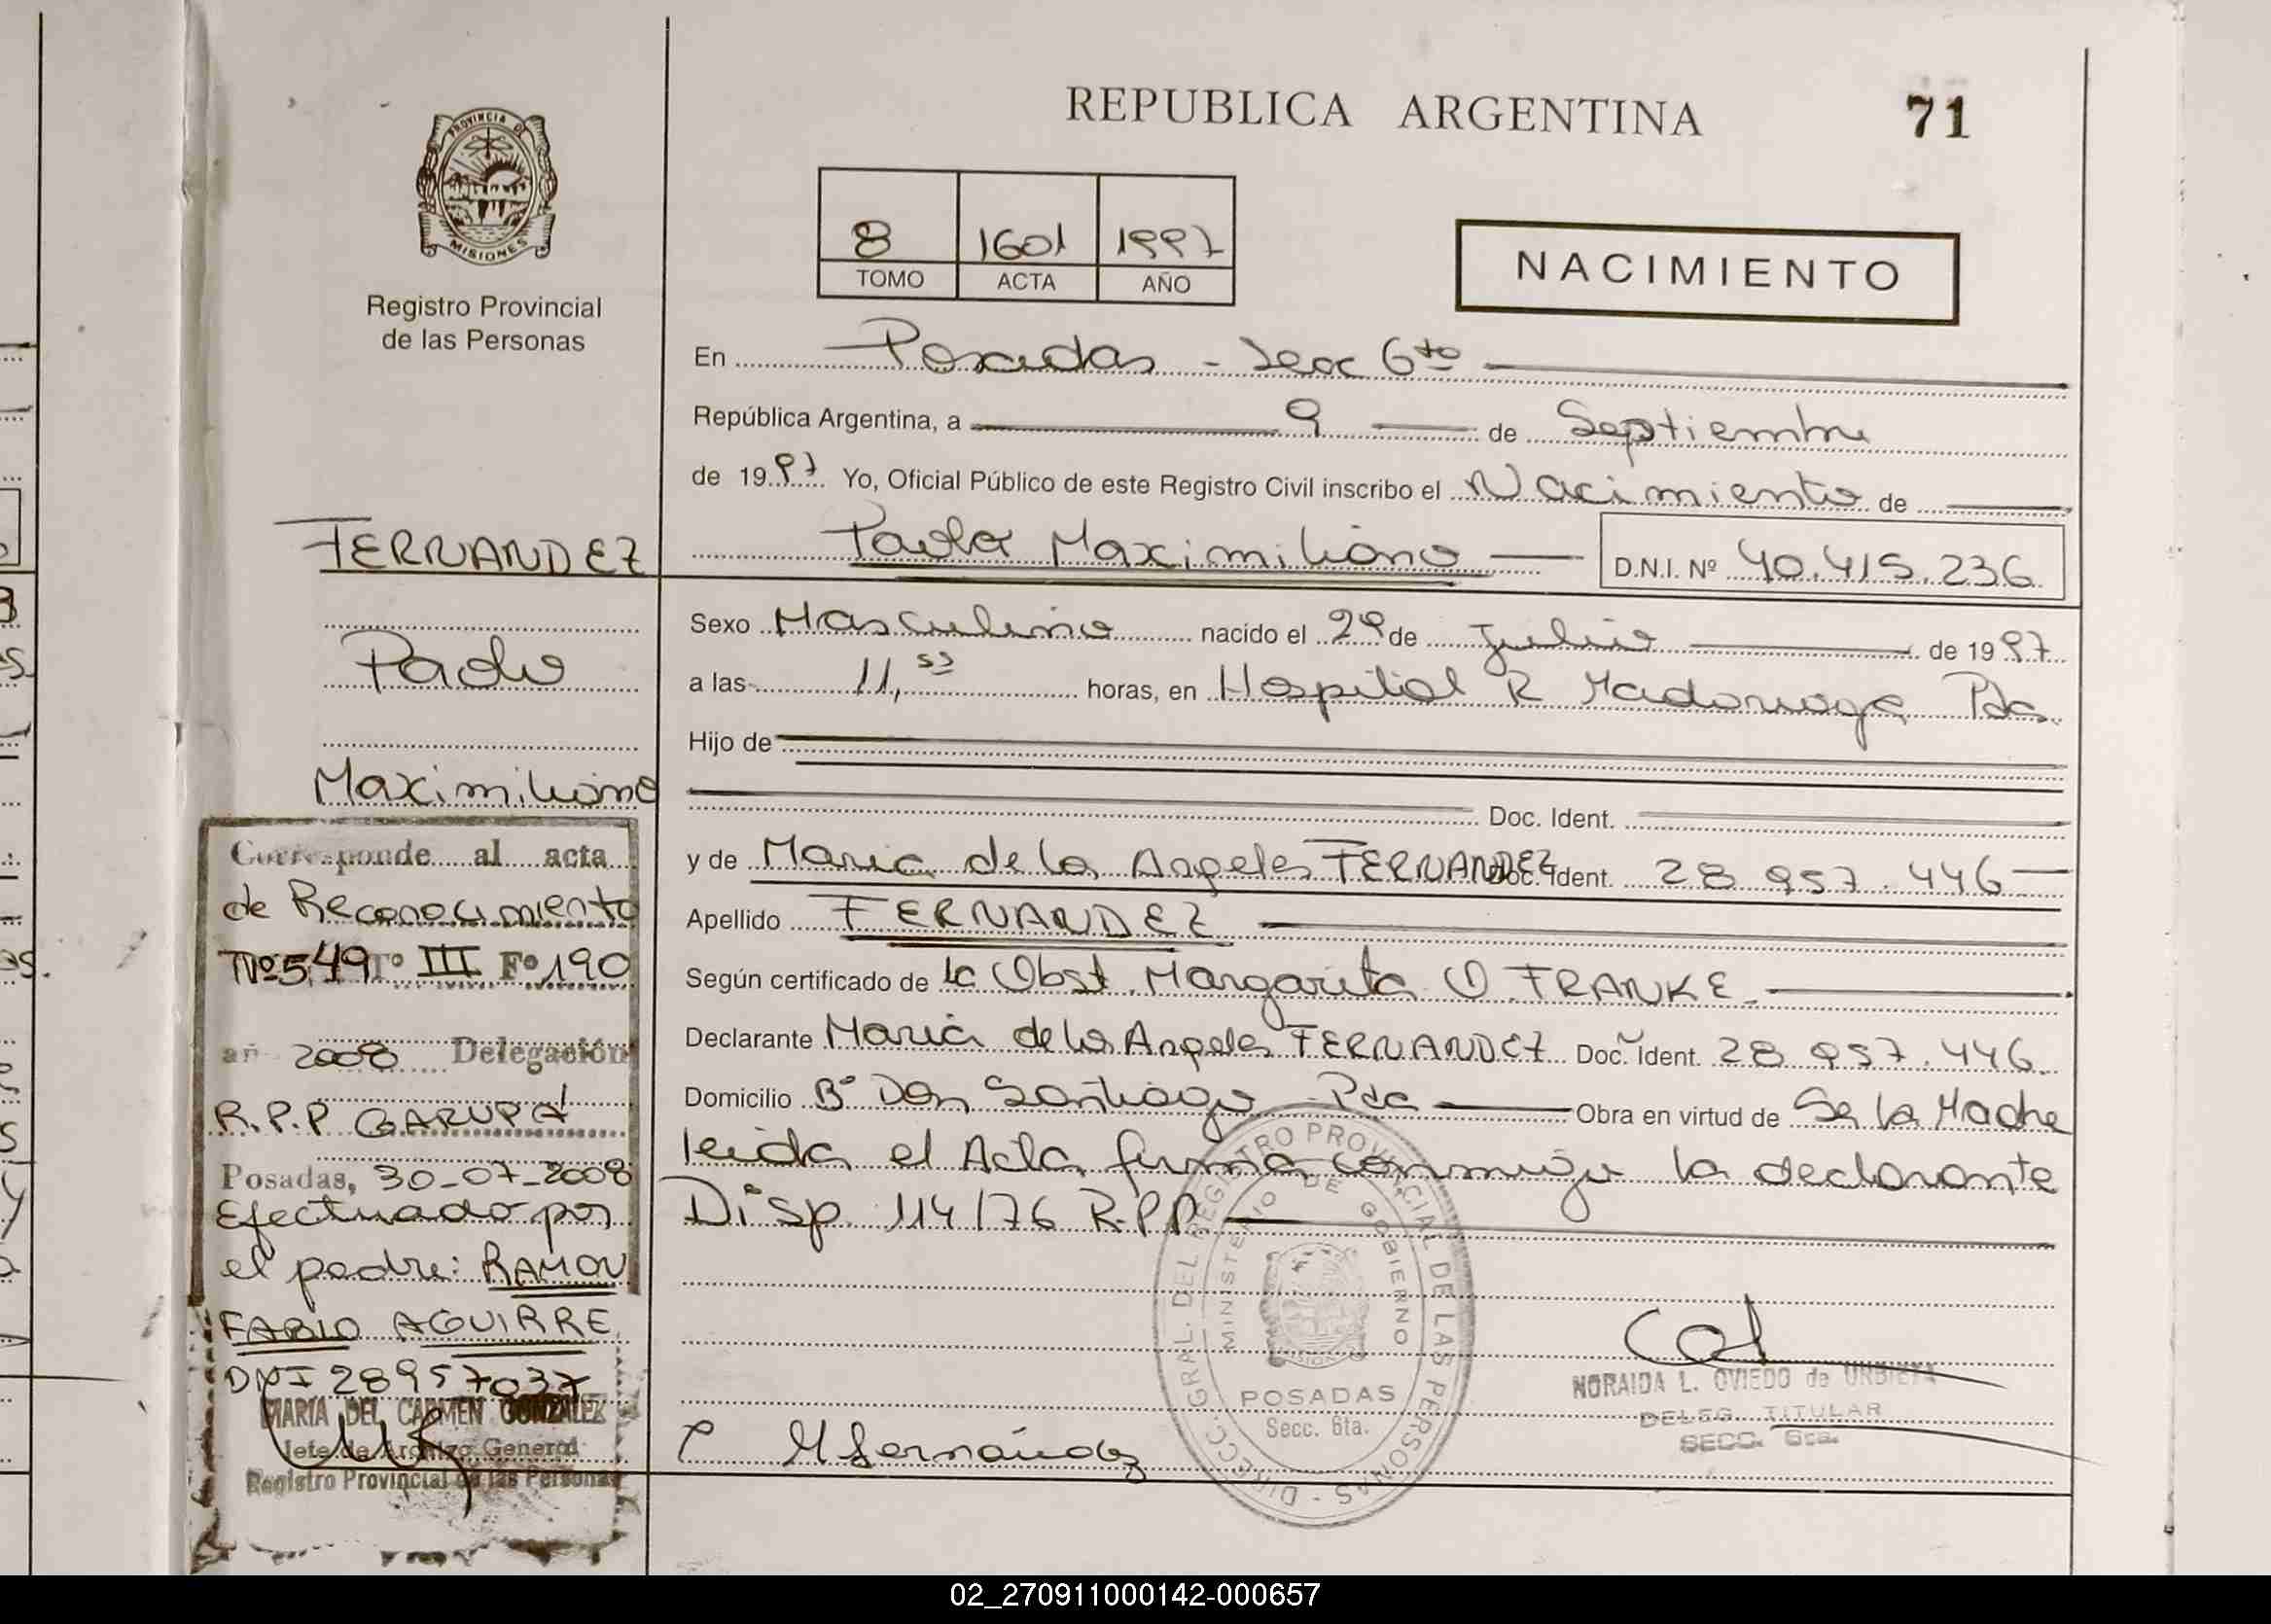 REPUBLICA ARGENTINA
71
PROVINCIA DE
MISIONES
Registro Provincial
de las Personas
8 1601 1997
TOMO ACTA AÑO
NACIMIENTO
En Posadas - Secc 6ta
República Argentina, a 9 de Septiembre
de 1997 Yo, Oficial Público de este Registro Civil inscribo el Nacimiento de
Pablo Maximiliano D.N.I. Nº 40.415.236
Sexo Masculino nacido el 29 de Julio de 1997
a las 11,53 horas, en Hospital R Madariaga Pdas.
Hijo de
Doc. Ident.
y de Maria de los Angeles FERNANDEZ Doc. Ident. 28 957.446
Apellido FERNANDEZ
Según certificado de la Obst. Margarita O. FRANKE
Declarante Maria de los Angeles FERNANDEZ Doc. Ident. 28 957.446
Domicilio Bº Don Santiago - Pdas Obra en virtud de Ser la Madre
leida el Acta firma conmigo la declarante
Disp. 114/76 R.P.P.
M Fernández
DIRECC. GRAL. DEL REGISTRO PROVINCIAL DE LAS PERSONAS
MINISTERIO DE GOBIERNO
POSADAS
Secc. 6ta.
NORAIDA L. OVIEDO de URBIETA
DELEG. TITULAR
SECC. 6ta.
FERNANDEZ
Pablo
Maximiliano
Corresponde al acta
de Reconocimiento
Nº 549 Tº III Fº 190
añ 2008 Delegación
R.P.P GARUPÁ
Posadas, 30-07-2008
Efectuado por
el padre: RAMON
FABIO AGUIRRE
DNI 28957037
MARIA DEL CARMEN GONZALEZ
Jefe de Archivo General
Registro Provincial de las Personas
02_270911000142-000657